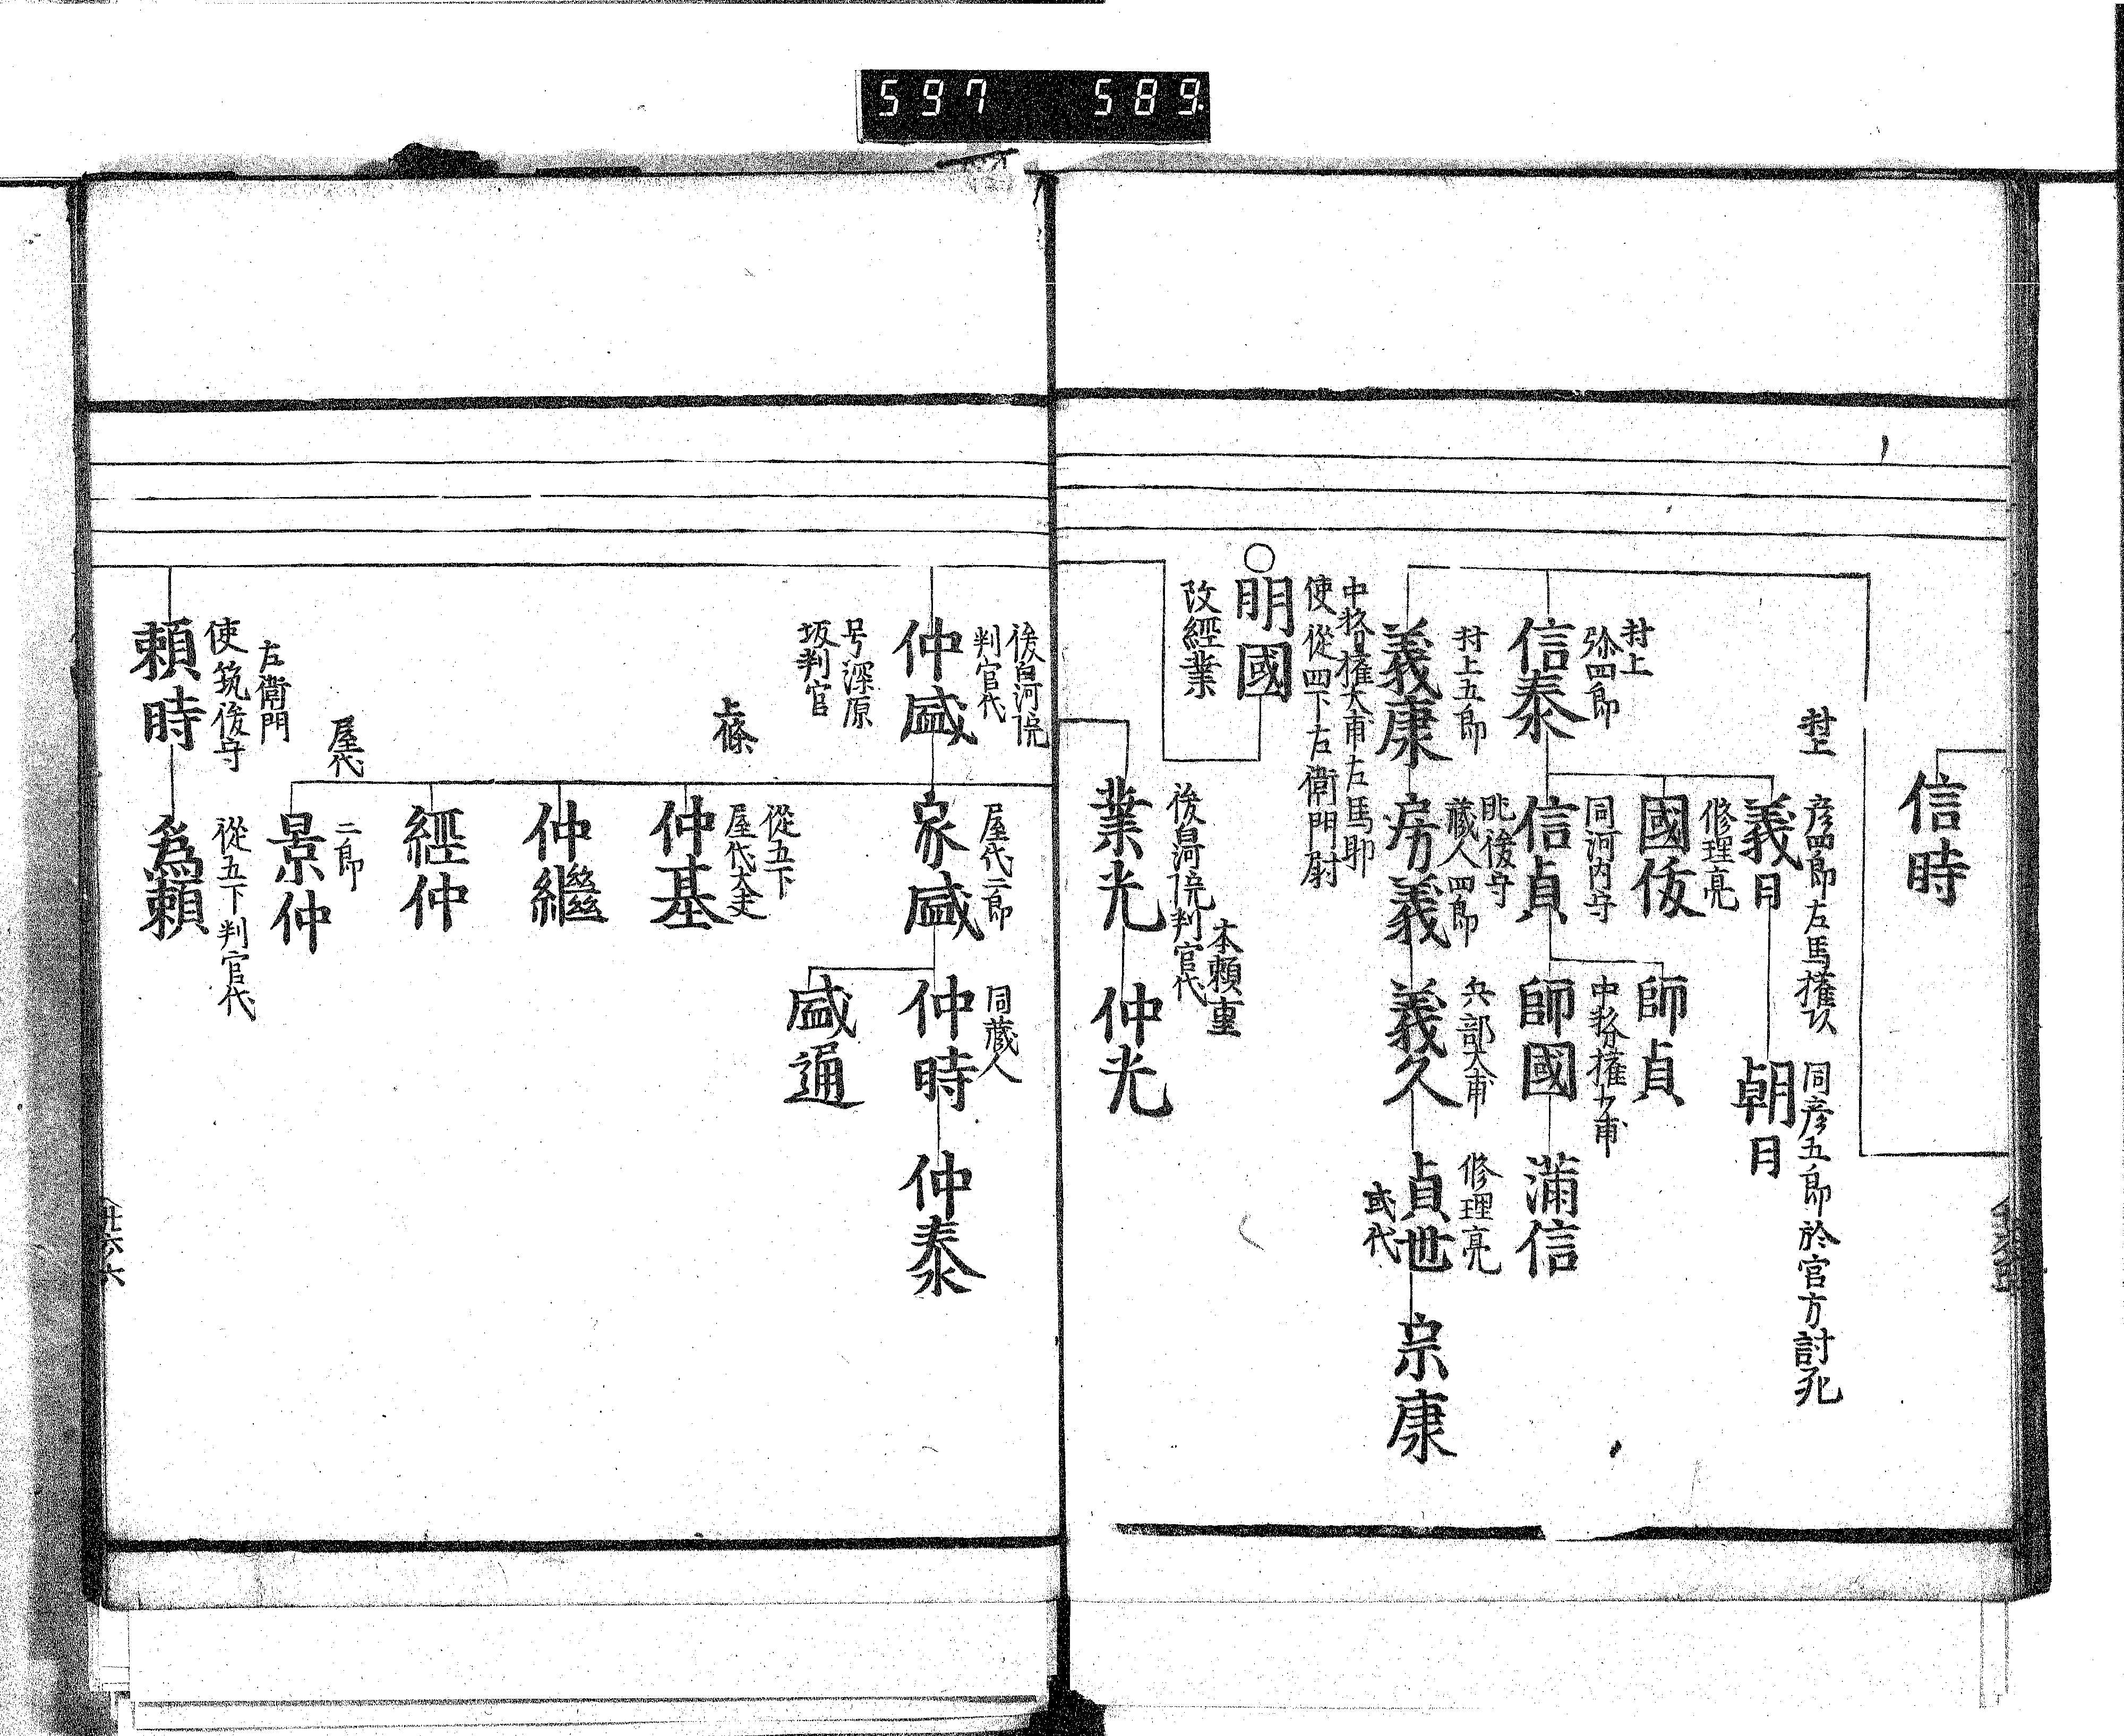 597 589
信時
村上
義日
彦四郎左馬權頭
朝日
同彦五郎於官方討死
國信
修理亮
村上
弥四郎
信泰
信貞
同河内守
師貞
師國
中務權少甫
満信
村上五郎
義康
房義
肥後守
藏人四郎
義久
兵部大甫
貞世
修理亮
或代
宗康
明國
中務權大甫左馬助
使從四下左衛門尉
改經業
業光
後白河院判官代
本頼重
仲光
仲盛
後白河院
判官代
号深原
坂判官
家盛
屋代二郎
仲時
同藏人
仲泰
盛通
上條
仲基
從五下
屋代大夫
仲繼
經仲
屋代
景仲
二郎
頼時
左衛門
使筑後守
爲頼
從五下判官代